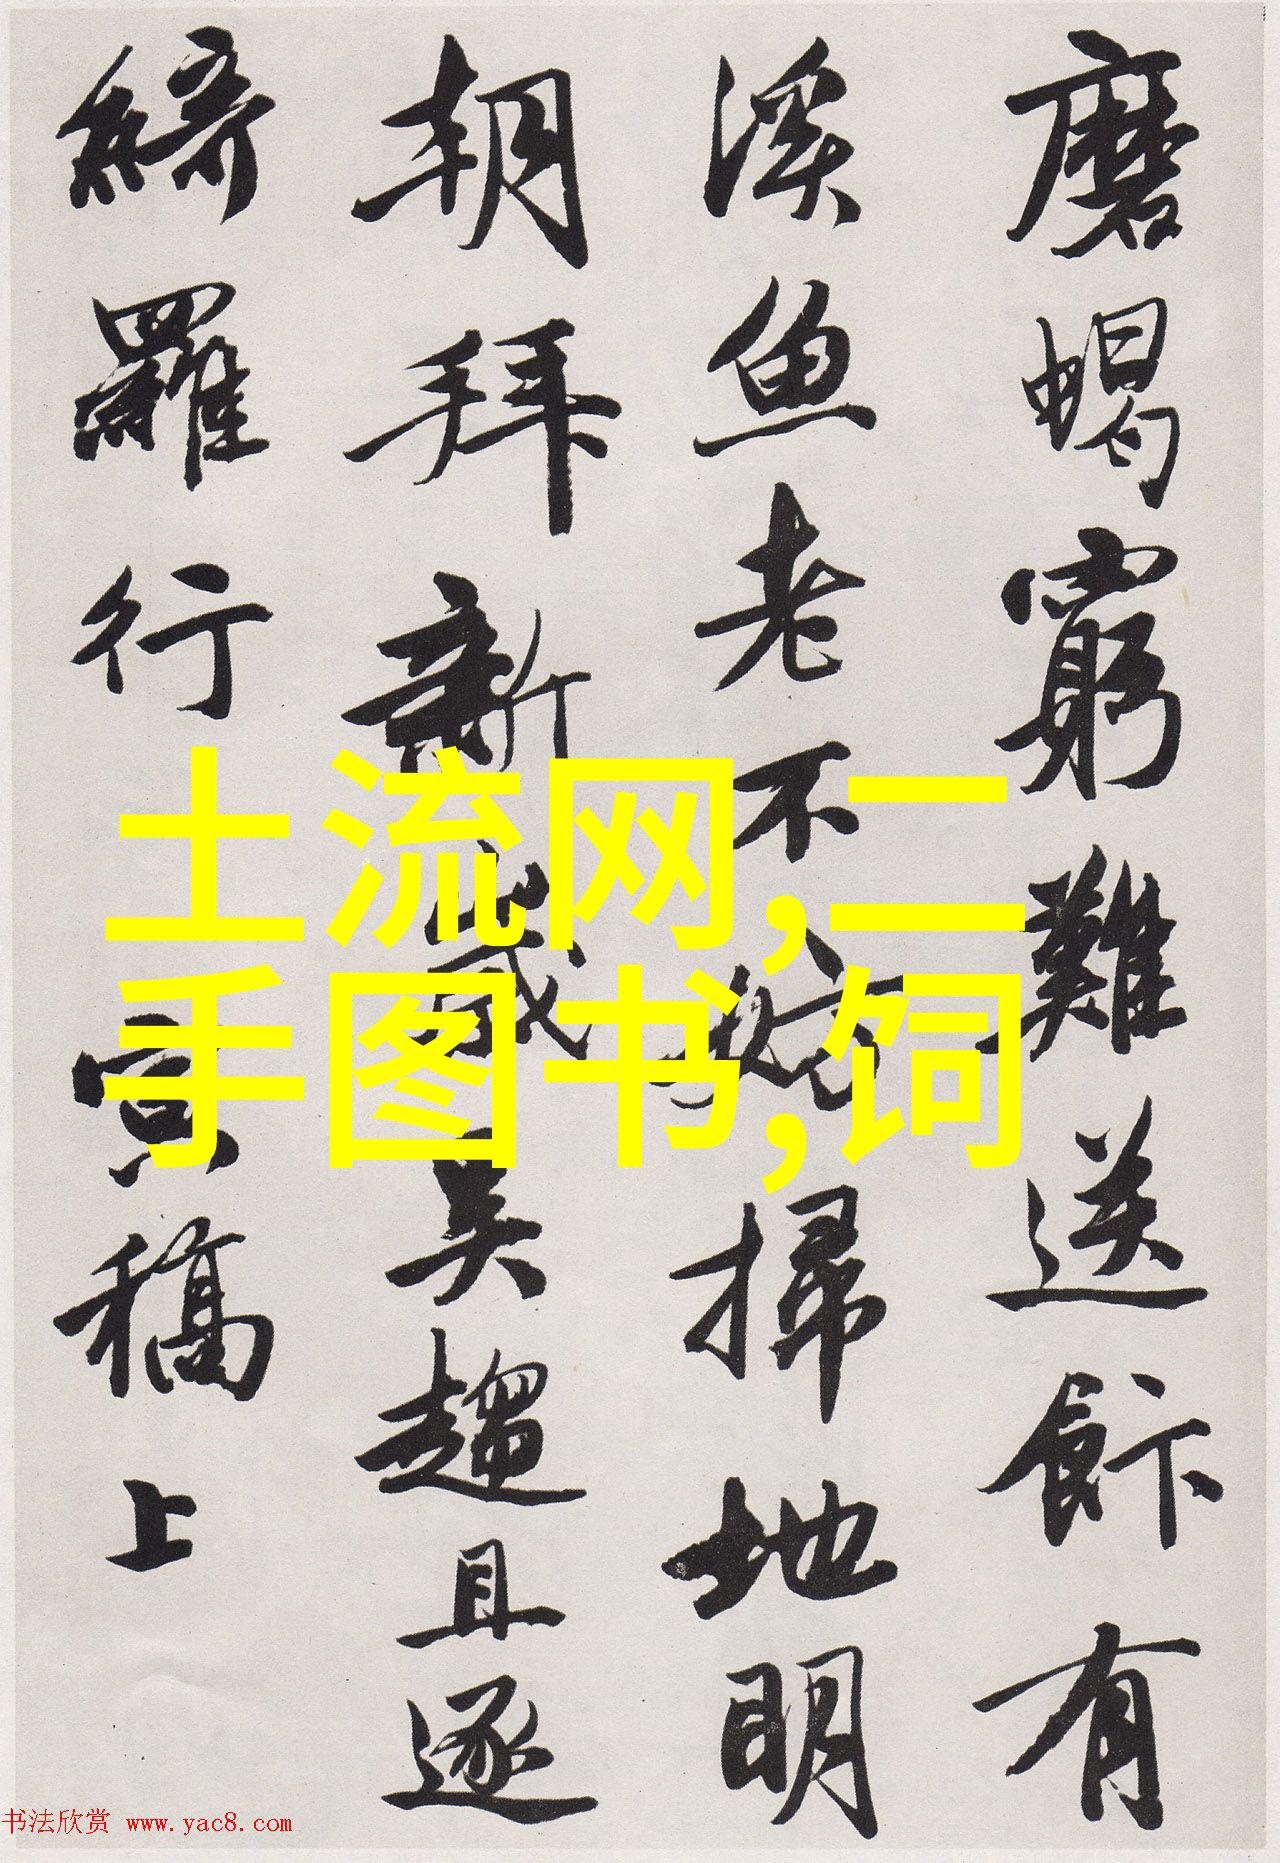 磨蝎窮難送飰有
溪魚老不妨掃地明
朝拜新歲吴趨且逐
綺羅行 寅稿上
土流网,二
手图书,饲
书法欣赏 www.yac8.com